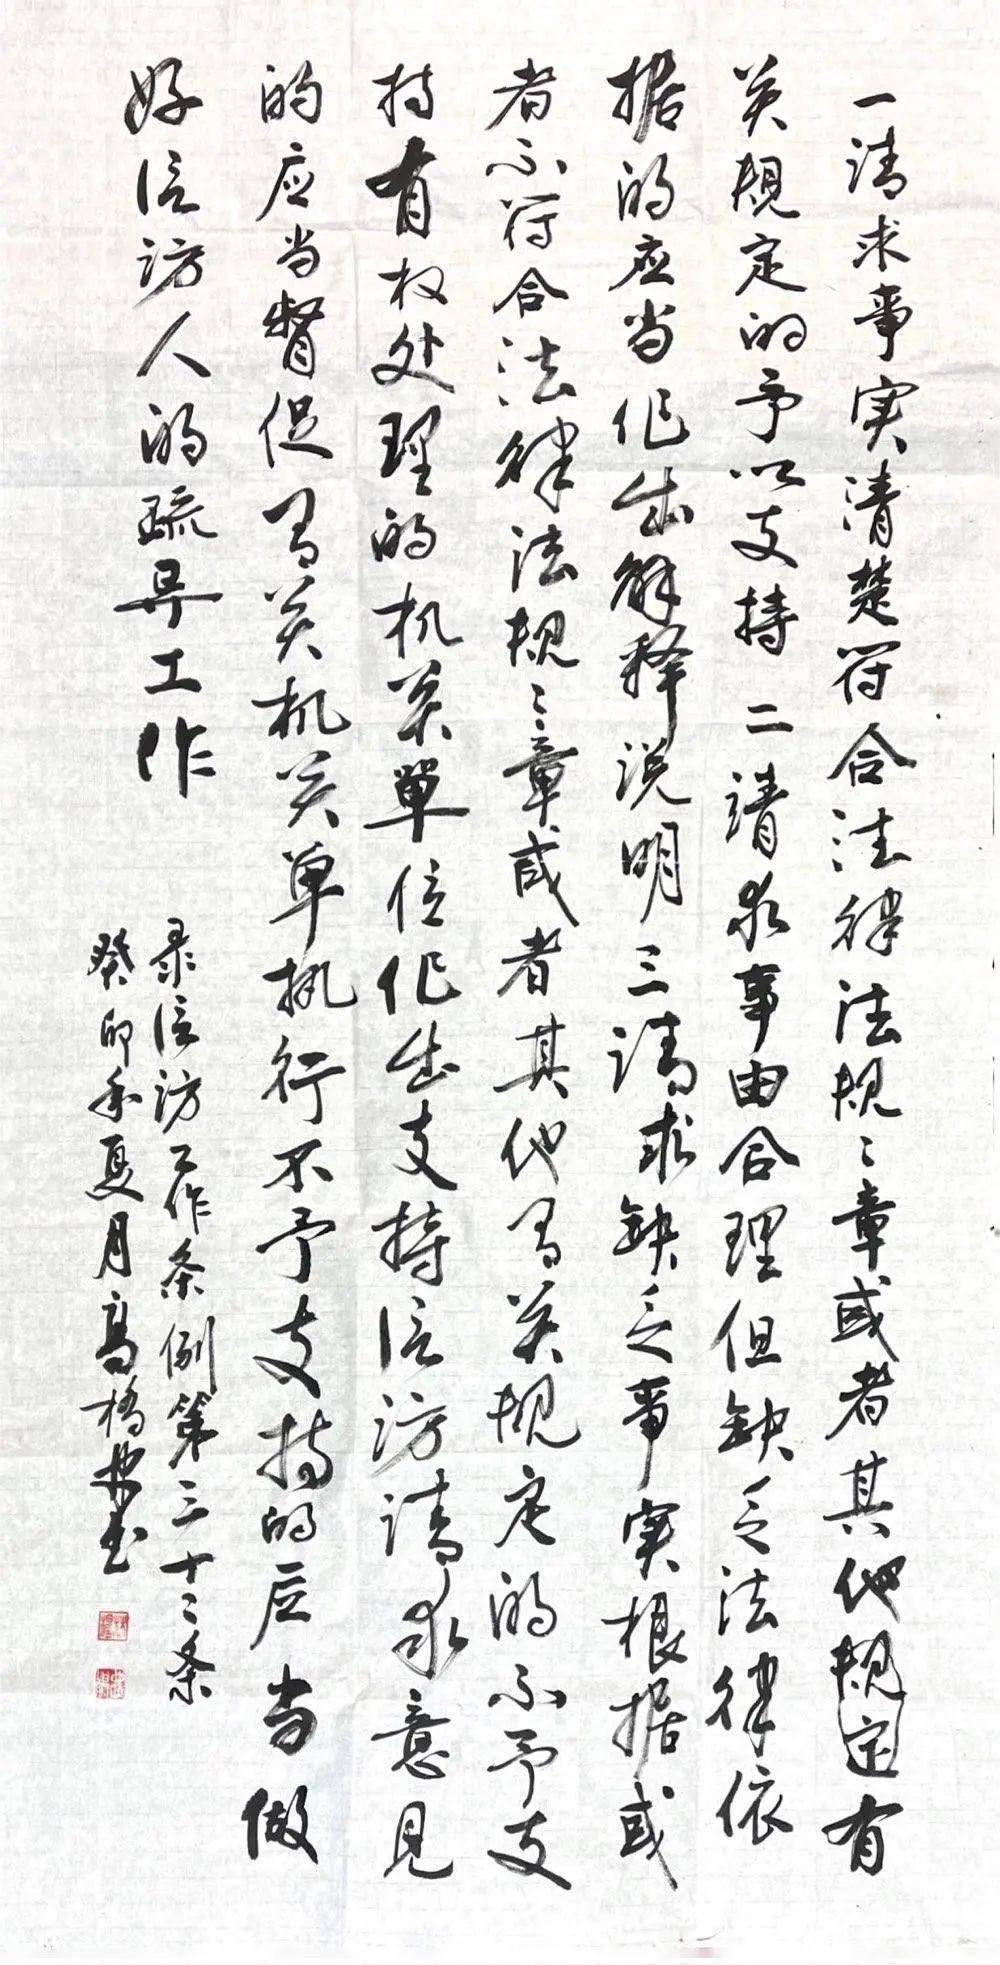 一请求事实清楚符合法律法规〻章或者其他规定有
关规定的予以支持二请求事由合理但缺乏法律依
据的应当作出解释说明三请求缺乏事实根据或
者不符合法律法规〻章或者其他有关规定的不予支
持有权处理的机关單位作出支持信访请求意见
的应当督促有关机关单执行不予支持的应当做
好信访人的疏导工作
录信访工作条例第三十二条
癸卯年夏月高橋书